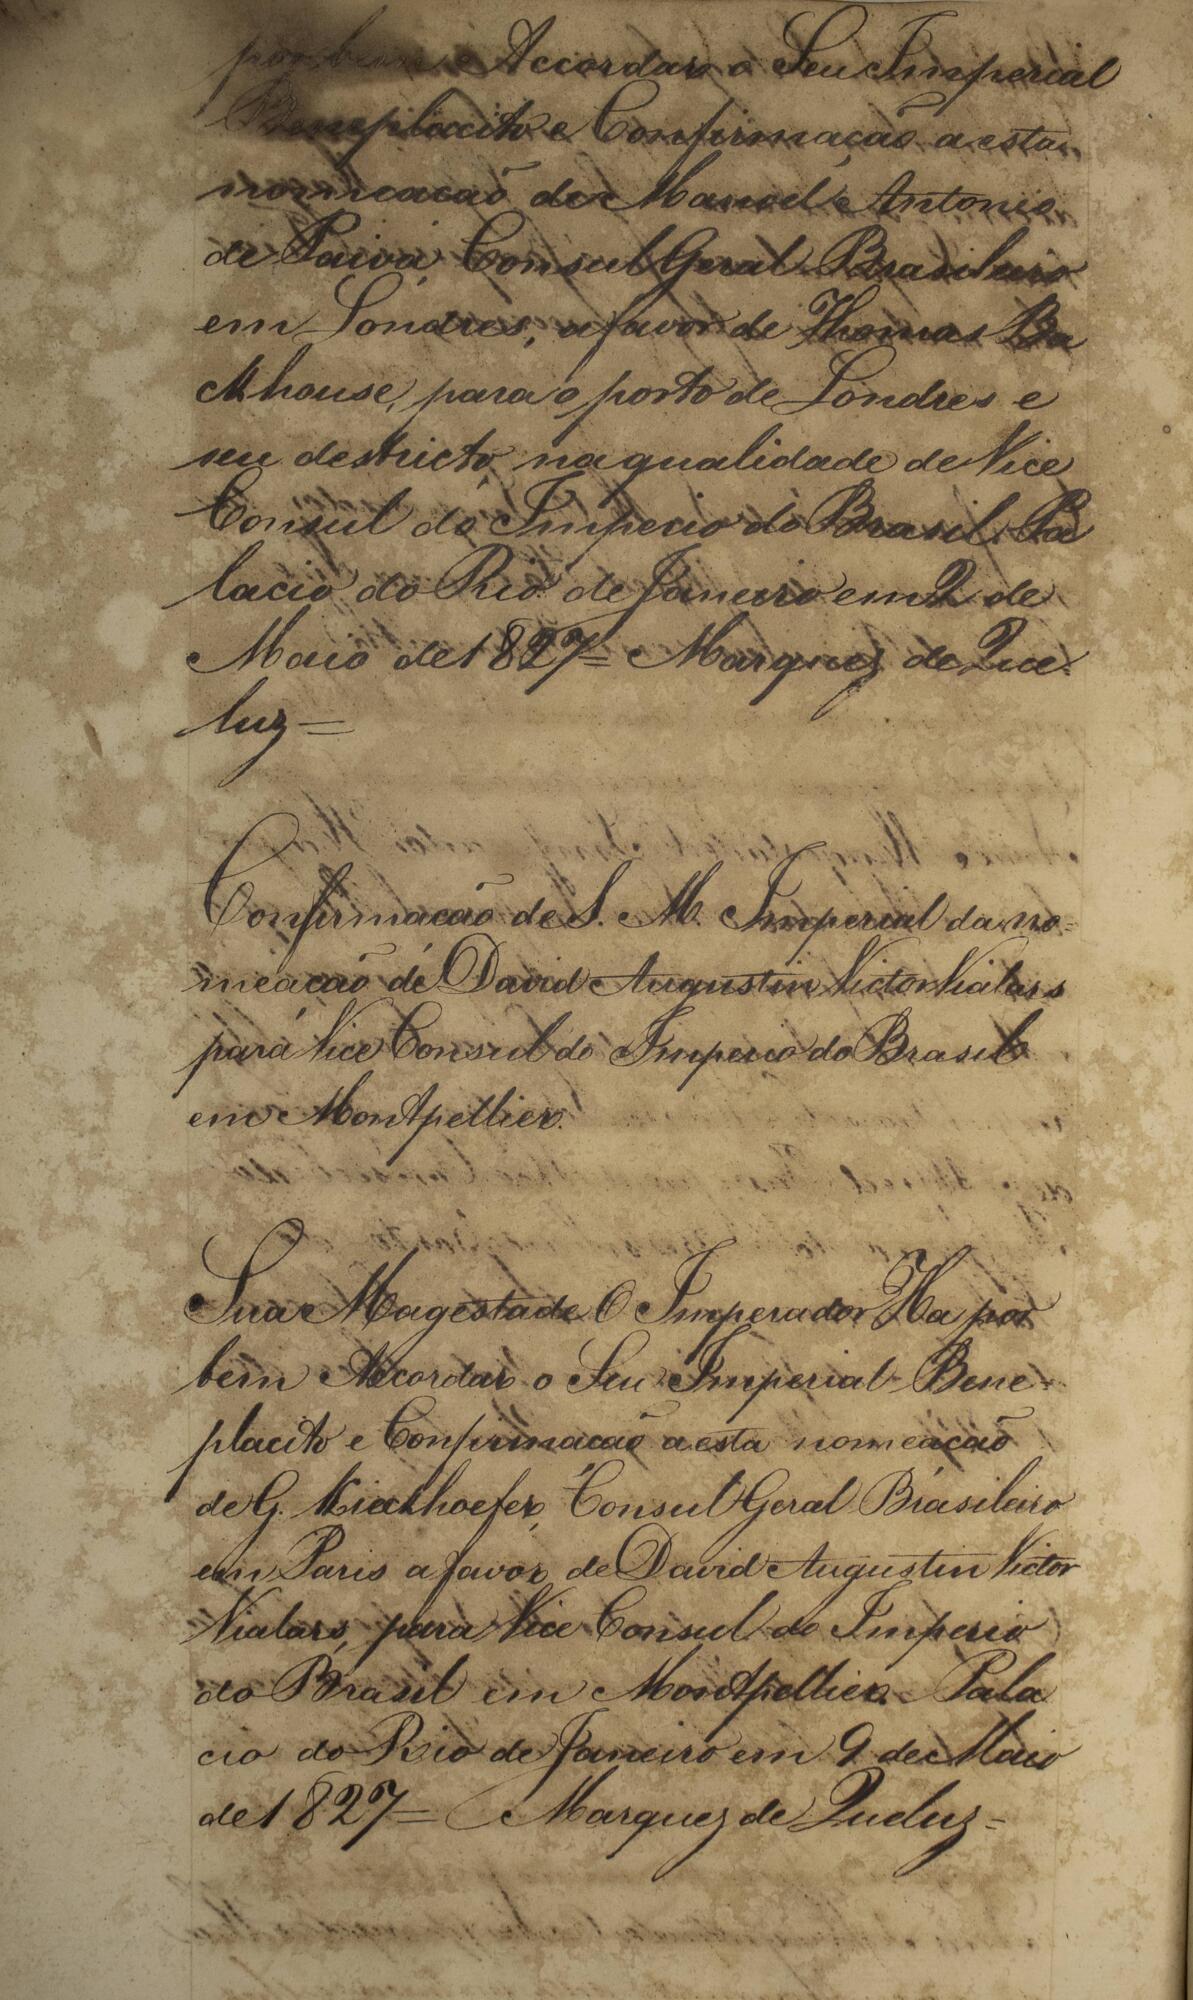 por bem Accordar o Seu Imperial
Beneplacito e Confirmação a esta
nomeacaõ de Manoel Antonio
de Paiva Consul Geral Brasileiro
em Londres, a favor de Thomas Ba
ckhouse, para o porto de Londres e
seu destricto, na qualidade de Vice
Consul do Imperio do Brasil. Pa
lacio do Rio de Janeiro em 2 de
Maio de 1827 = Marquez de Que
luz =
Confirmacaõ de S. M. Imperial da no=
meacaõ de David Augustin Victor Vialars
para Vice Consul do Imperio do Brasil
em Montpellier.
Sua Magestade O Imperador Ha por
bem Accordar o Seu Imperial Bene-
placito e Confirmacaõ a esta nomeacaõ
de G. Kieckhoefer, Consul Geral Brasileiro
em Paris a favor de David Augustin Victor
Vialars, para Vice Consul do Imperio
do Brasil em Montpellier. Pala
cio do Rio de Janeiro em 9 de Maio
de 1827 = Marquez de Queluz =